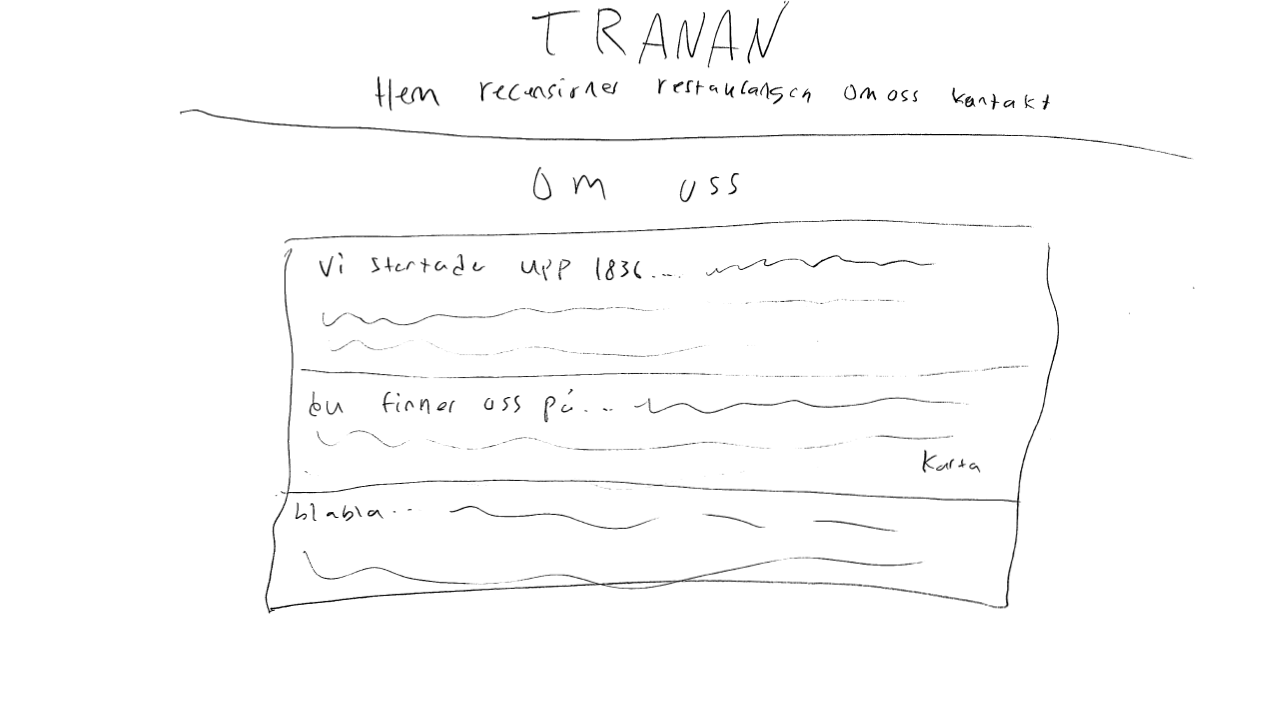 TRANAN
Hem recensioner restaurangen Om oss kontakt
Om oss
Vi startade upp 1836...
Du finner oss på...
Karta
blabla...